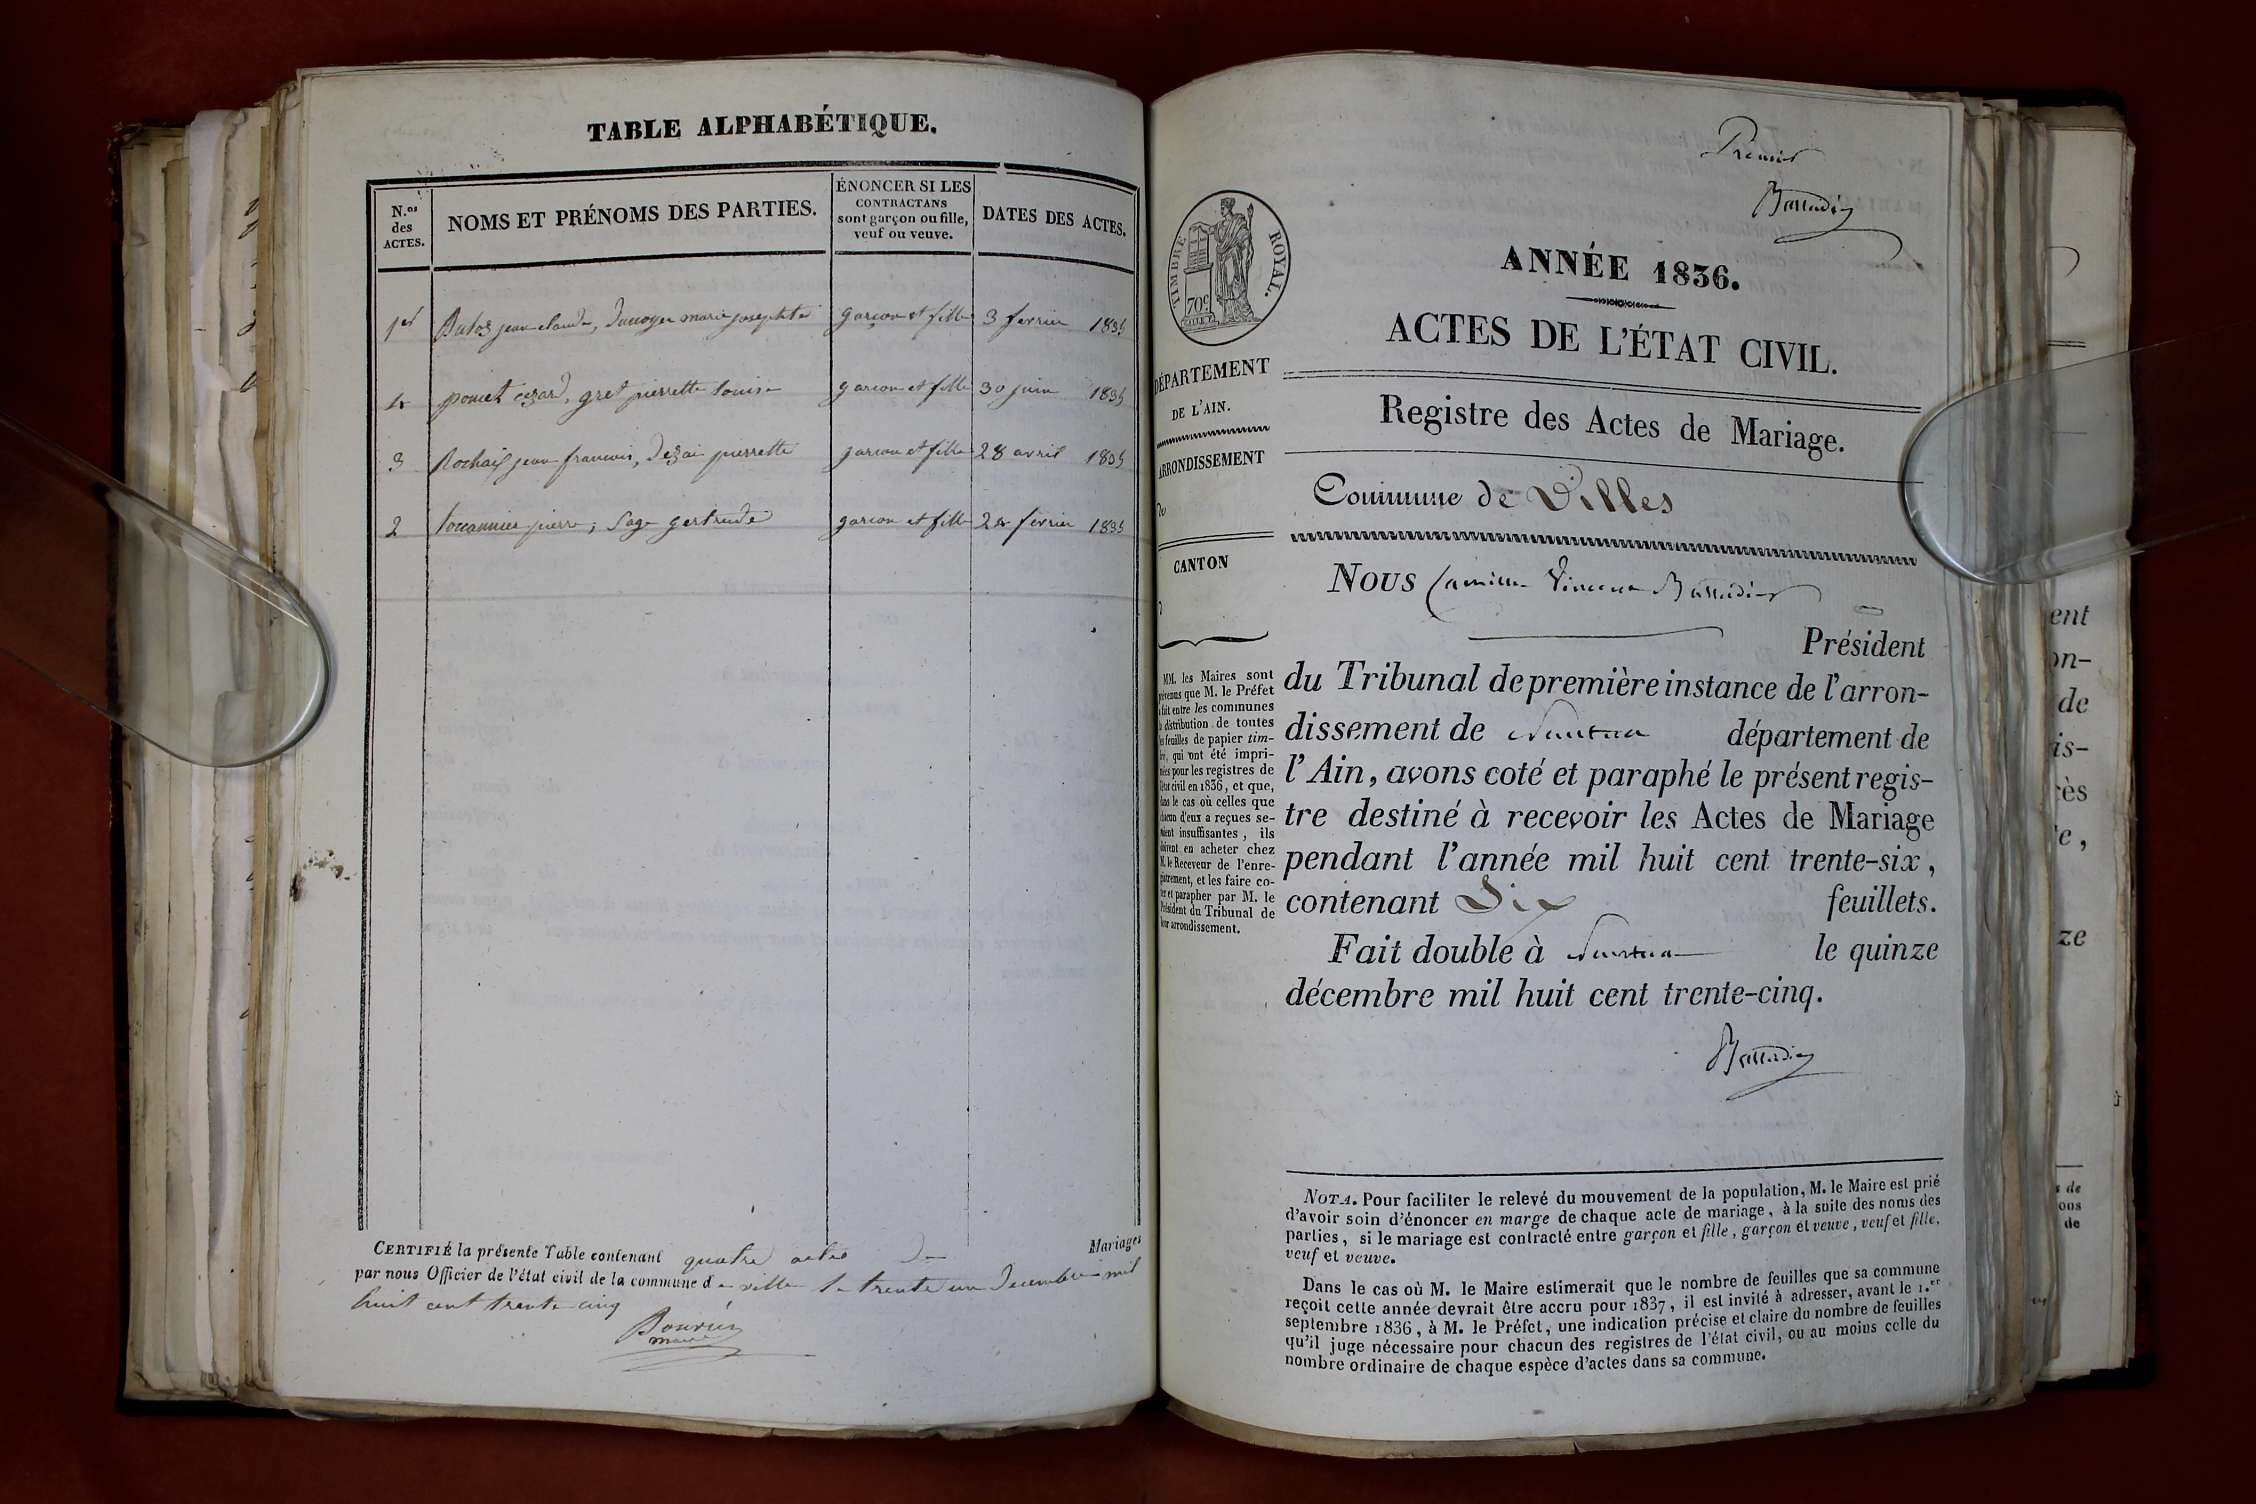 TABLE ALPHABÉTIQUE.
N.os des ACTES.
NOMS ET PRÉNOMS DES PARTIES.
ÉNONCER SI LES CONTRACTANS sont garçon ou fille, veuf ou veuve.
DATES DES ACTES.
1er jean claude, marie josephte garçon et fille 3 fevrier 1835
4 poncet cezard, gret pierrette louise garcon et fille 30 juin 1835
3 Rochaix jean francois, Dezai pierrette garcon et fille 28 avril 1835
2 pierre, Sage gertrude garcon et fille 24 fevrier 1835
CERTIFIÉ la présente Table contenant quatre actes de Mariages
par nous Officier de l'état civil de la commune de ville le trente un Decembre mil
huit cent trente cinq
Bouvier
maire
Premier
Bassadier
TIMBRE ROYAL.
70c
ANNÉE 1836.
ACTES DE L'ÉTAT CIVIL.
DÉPARTEMENT
DE L'AIN.
ARRONDISSEMENT
de
CANTON
Registre des Actes de Mariage.
Commune de Villes
MM. les Maires sont
prévenus que M. le Préfet
a fait entre les communes
la distribution de toutes
les feuilles de papier tim-
bré, qui ont été impri-
mées pour les registres de
l'état civil en 1836, et que,
dans le cas où celles que
chacun d'eux a reçues se-
raient insuffisantes, ils
doivent en acheter chez
M. le Receveur de l'enre-
gistrement, et les faire co-
ter et parapher par M. le
Président du Tribunal de
leur arrondissement.
Nous Camille Vincent Bassadier
Président
du Tribunal de première instance de l'arron-
dissement de Nantua département de
l'Ain, avons coté et paraphé le présent regis-
tre destiné à recevoir les Actes de Mariage
pendant l'année mil huit cent trente-six,
contenant Six feuillets.
Fait double à Nantua le quinze
décembre mil huit cent trente-cinq.
Bassadier
NOTA. Pour faciliter le relevé du mouvement de la population, M. le Maire est prié
d'avoir soin d'énoncer en marge de chaque acte de mariage, à la suite des noms des
parties, si le mariage est contracté entre garçon et fille, garçon et veuve, veuf et fille,
veuf et veuve.
Dans le cas où M. le Maire estimerait que le nombre de feuilles que sa commune
reçoit cette année devrait être accru pour 1837, il est invité à adresser, avant le 1.er
septembre 1836, à M. le Préfet, une indication précise et claire du nombre de feuilles
qu'il juge nécessaire pour chacun des registres de l'état civil, ou au moins celle du
nombre ordinaire de chaque espèce d'actes dans sa commune.